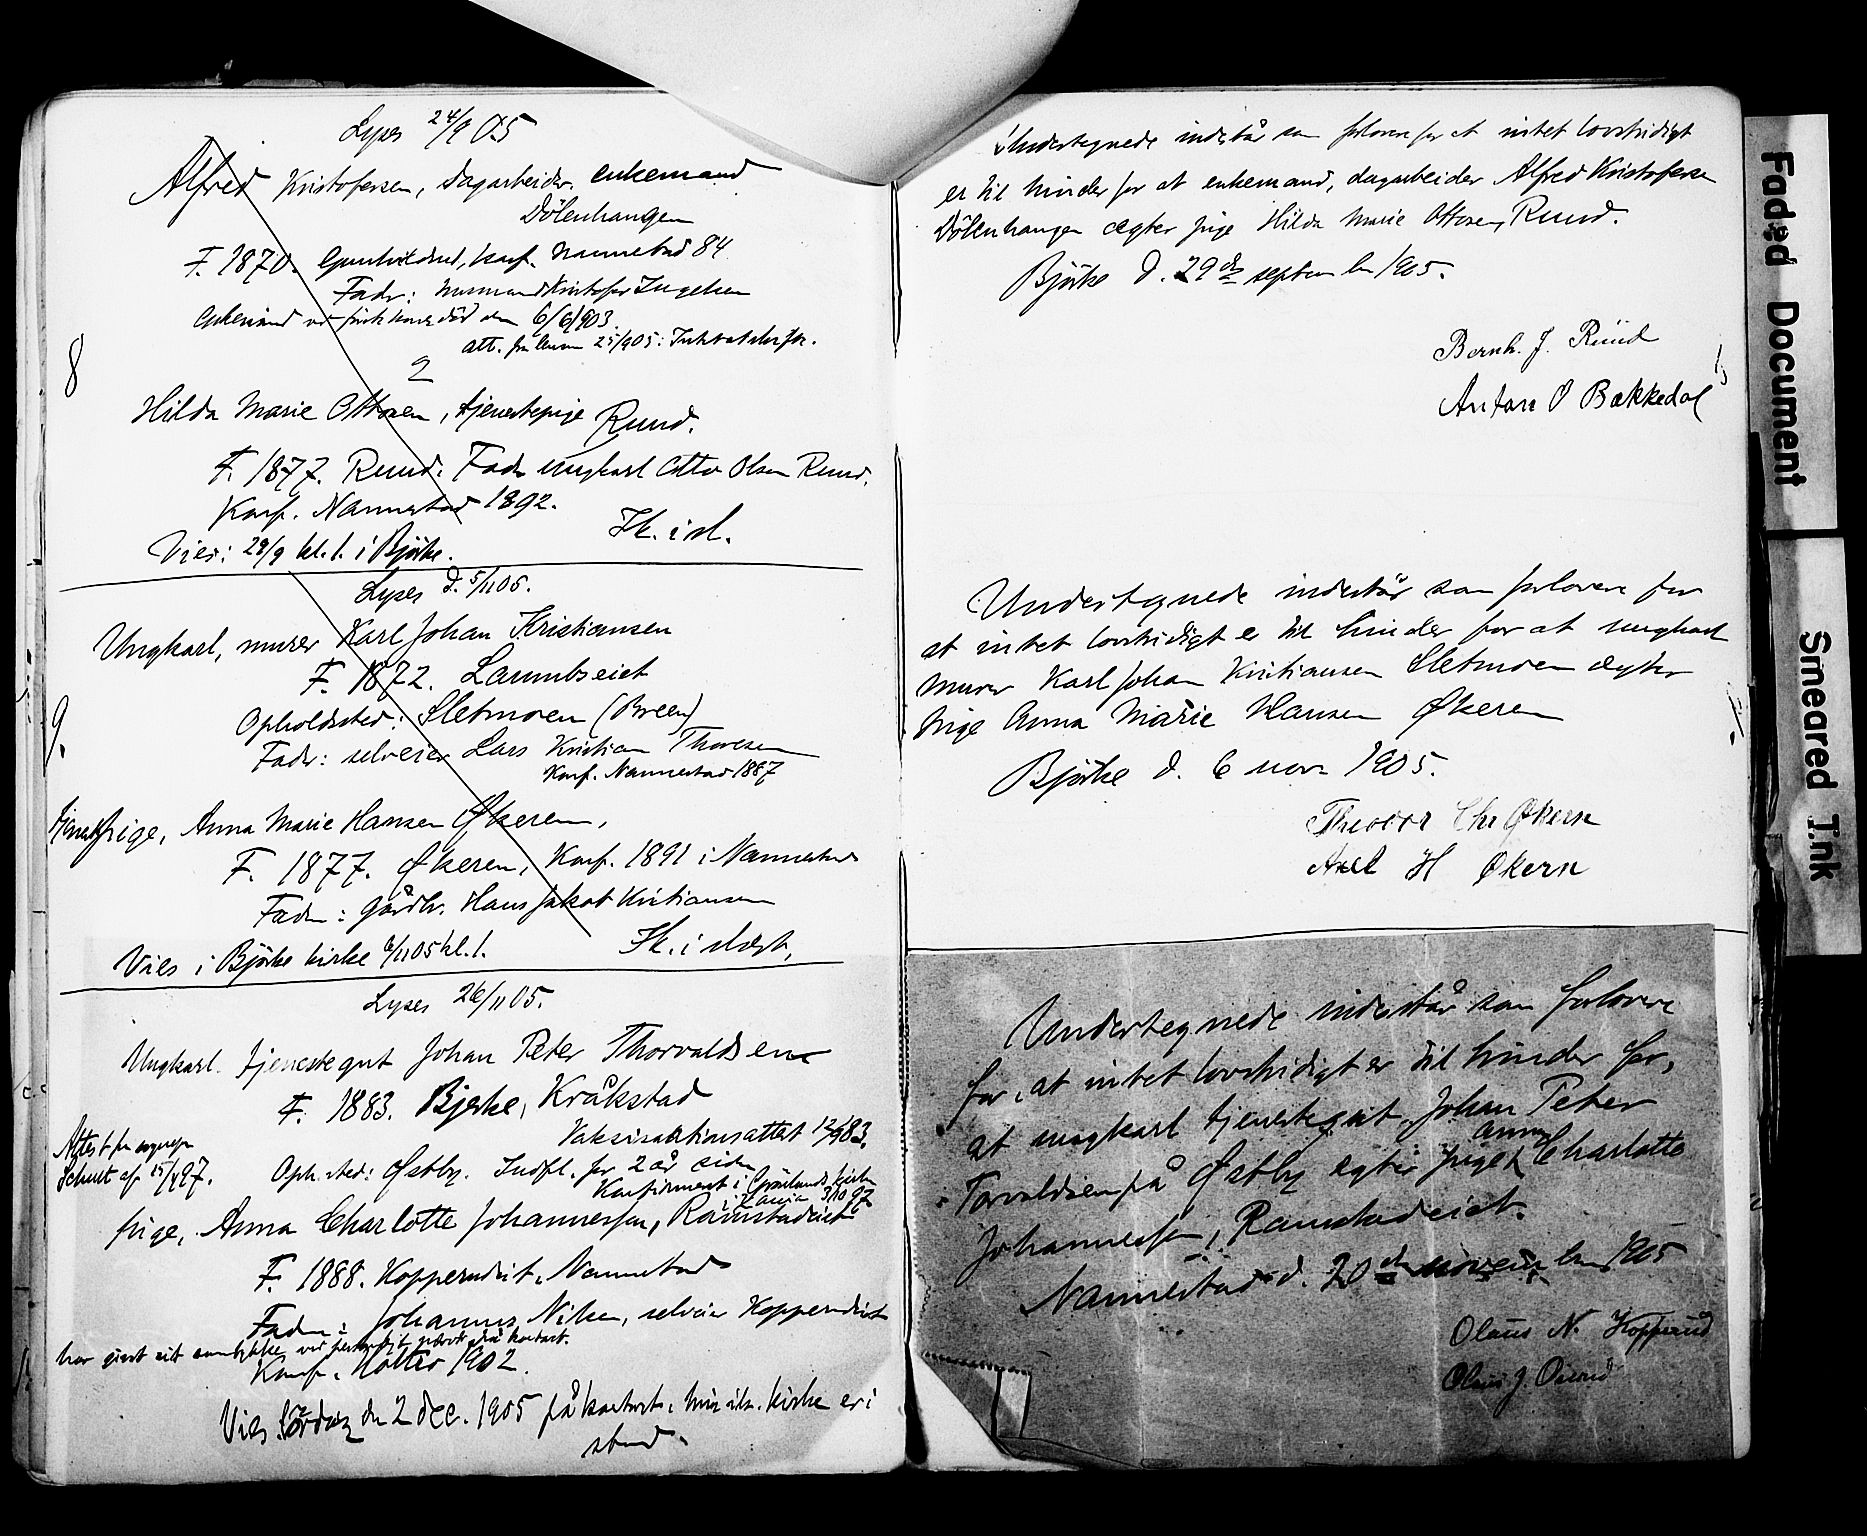 Lyses 24/9 05
Alfred Kristofersen, dagarbeider. enkemand
Dölenhaugen
F. 1870. Gunhildrud, konf. Nannestad 84
Fader: husmand Kristofer Ingelsen
Enkemand ved første kones død den 6/6 903.
att. fra 25/9 05: Intet at skifte.
8
2
Hilda Marie Ottosen, tjenestepige Ruud.
F. 1877. Ruud. Fader ungkarl Otto Olsen Ruud.
Konf. Nannestad 1892.
Ik. i sl.
Vies: 29/9 kl. 1. i Bjørke.
Lyses d. 5/11 05.
Ungkarl, murer Karl Johan Kristiansen
F. 1872. Laumbseiet
Opholdsted: Sletmoen (Breen)
9.
Fader: selveier Lars Kristian Thoresen
Konf. Nannestad 1887
tjenestepige, Anna Marie Hansen Økeren,
F. 1877. Økeren, Konf. 1891 i Nannestad
Fader: gårdbr. Hans Jakob Kristiansen
Vies i Bjørke kirke 6/11 05 kl. 1.
Ik. i slægt.
Lyses 26/11 05.
Ungkarl. tjenestegut Johan Peter Thorvaldsen
F. 1883. Bjerke, Kråkstad
Vaksinationsattest 12/9 83.
Attest fra sognepr.
Schult af 15/4 97.
Oph. sted: Østby. Indfl. for 2 år siden
Konfirmert i Grønlands kirke
i Kania 3/10 97
pige, Anna Charlotte Johannessen, Ramstadeiet
F. 1888. Kopperudeit. Nannestad
Fader: Johannes Nilsen, selveier Kopperudeit
har givet sit samtykke ved personligt fremmøte på kontoret.
Konf. Holter 1902.
Vies Lördag den 2 dec. 1905 på kontoret, hvis ik. kirke er i
stand.
Undertegnede indestår som forlovere for at intet lovstridigt
er til hinder for at enkemand, dagarbeider Alfred Kristofersen
Dölenhaugen ægter pige Hilda Marie Ottosen, Ruud.
Bjørke d. 29de september 1905.
Bernh. J. Ruud
Anton O Bakkedal
Undertegnede indestår som forlovere for
at intet lovstridigt er til hinder for at ungkarl
murer Karl Johan Kristiansen Sletmoen ægter
pige Anna Marie Hansen Økeren
Bjørke d. 6 nov 1905.
Theodor Chr Økern
Axel H Økern
Undertegnede indestår som forlovere
for, at intet lovstridigt er til hinder for,
at ungkarl tjenestegut Johan Peter
Torvaldsen på Østby ægter pige Anna Charlotte
Johannessen, Ramstadeiet.
Nannestad d. 20de november 1905
Olaus N. Kopperud
Olaus J.
Faded Document
Smeared Ink